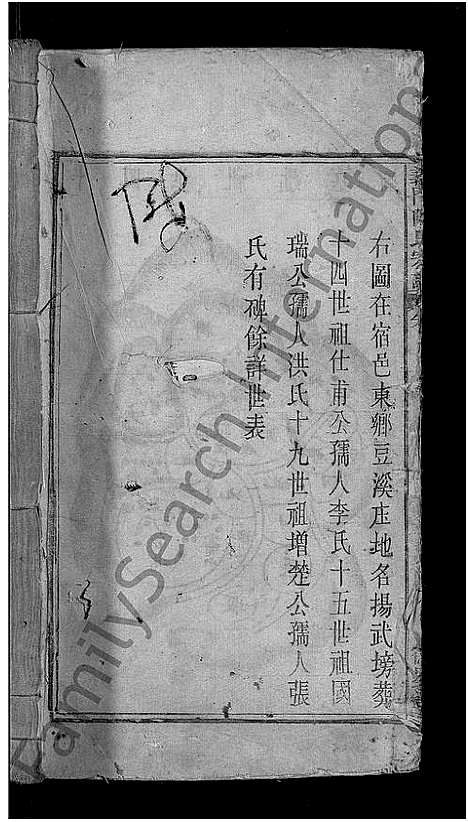 右圖在宿邑東鄉豆溪庄地名揚武塝葬
十四世祖仕甫公孺人李氏十五世祖國
瑞公孺人洪氏十九世祖增楚公孺人張
氏有碑餘詳世表
FamilySearch International